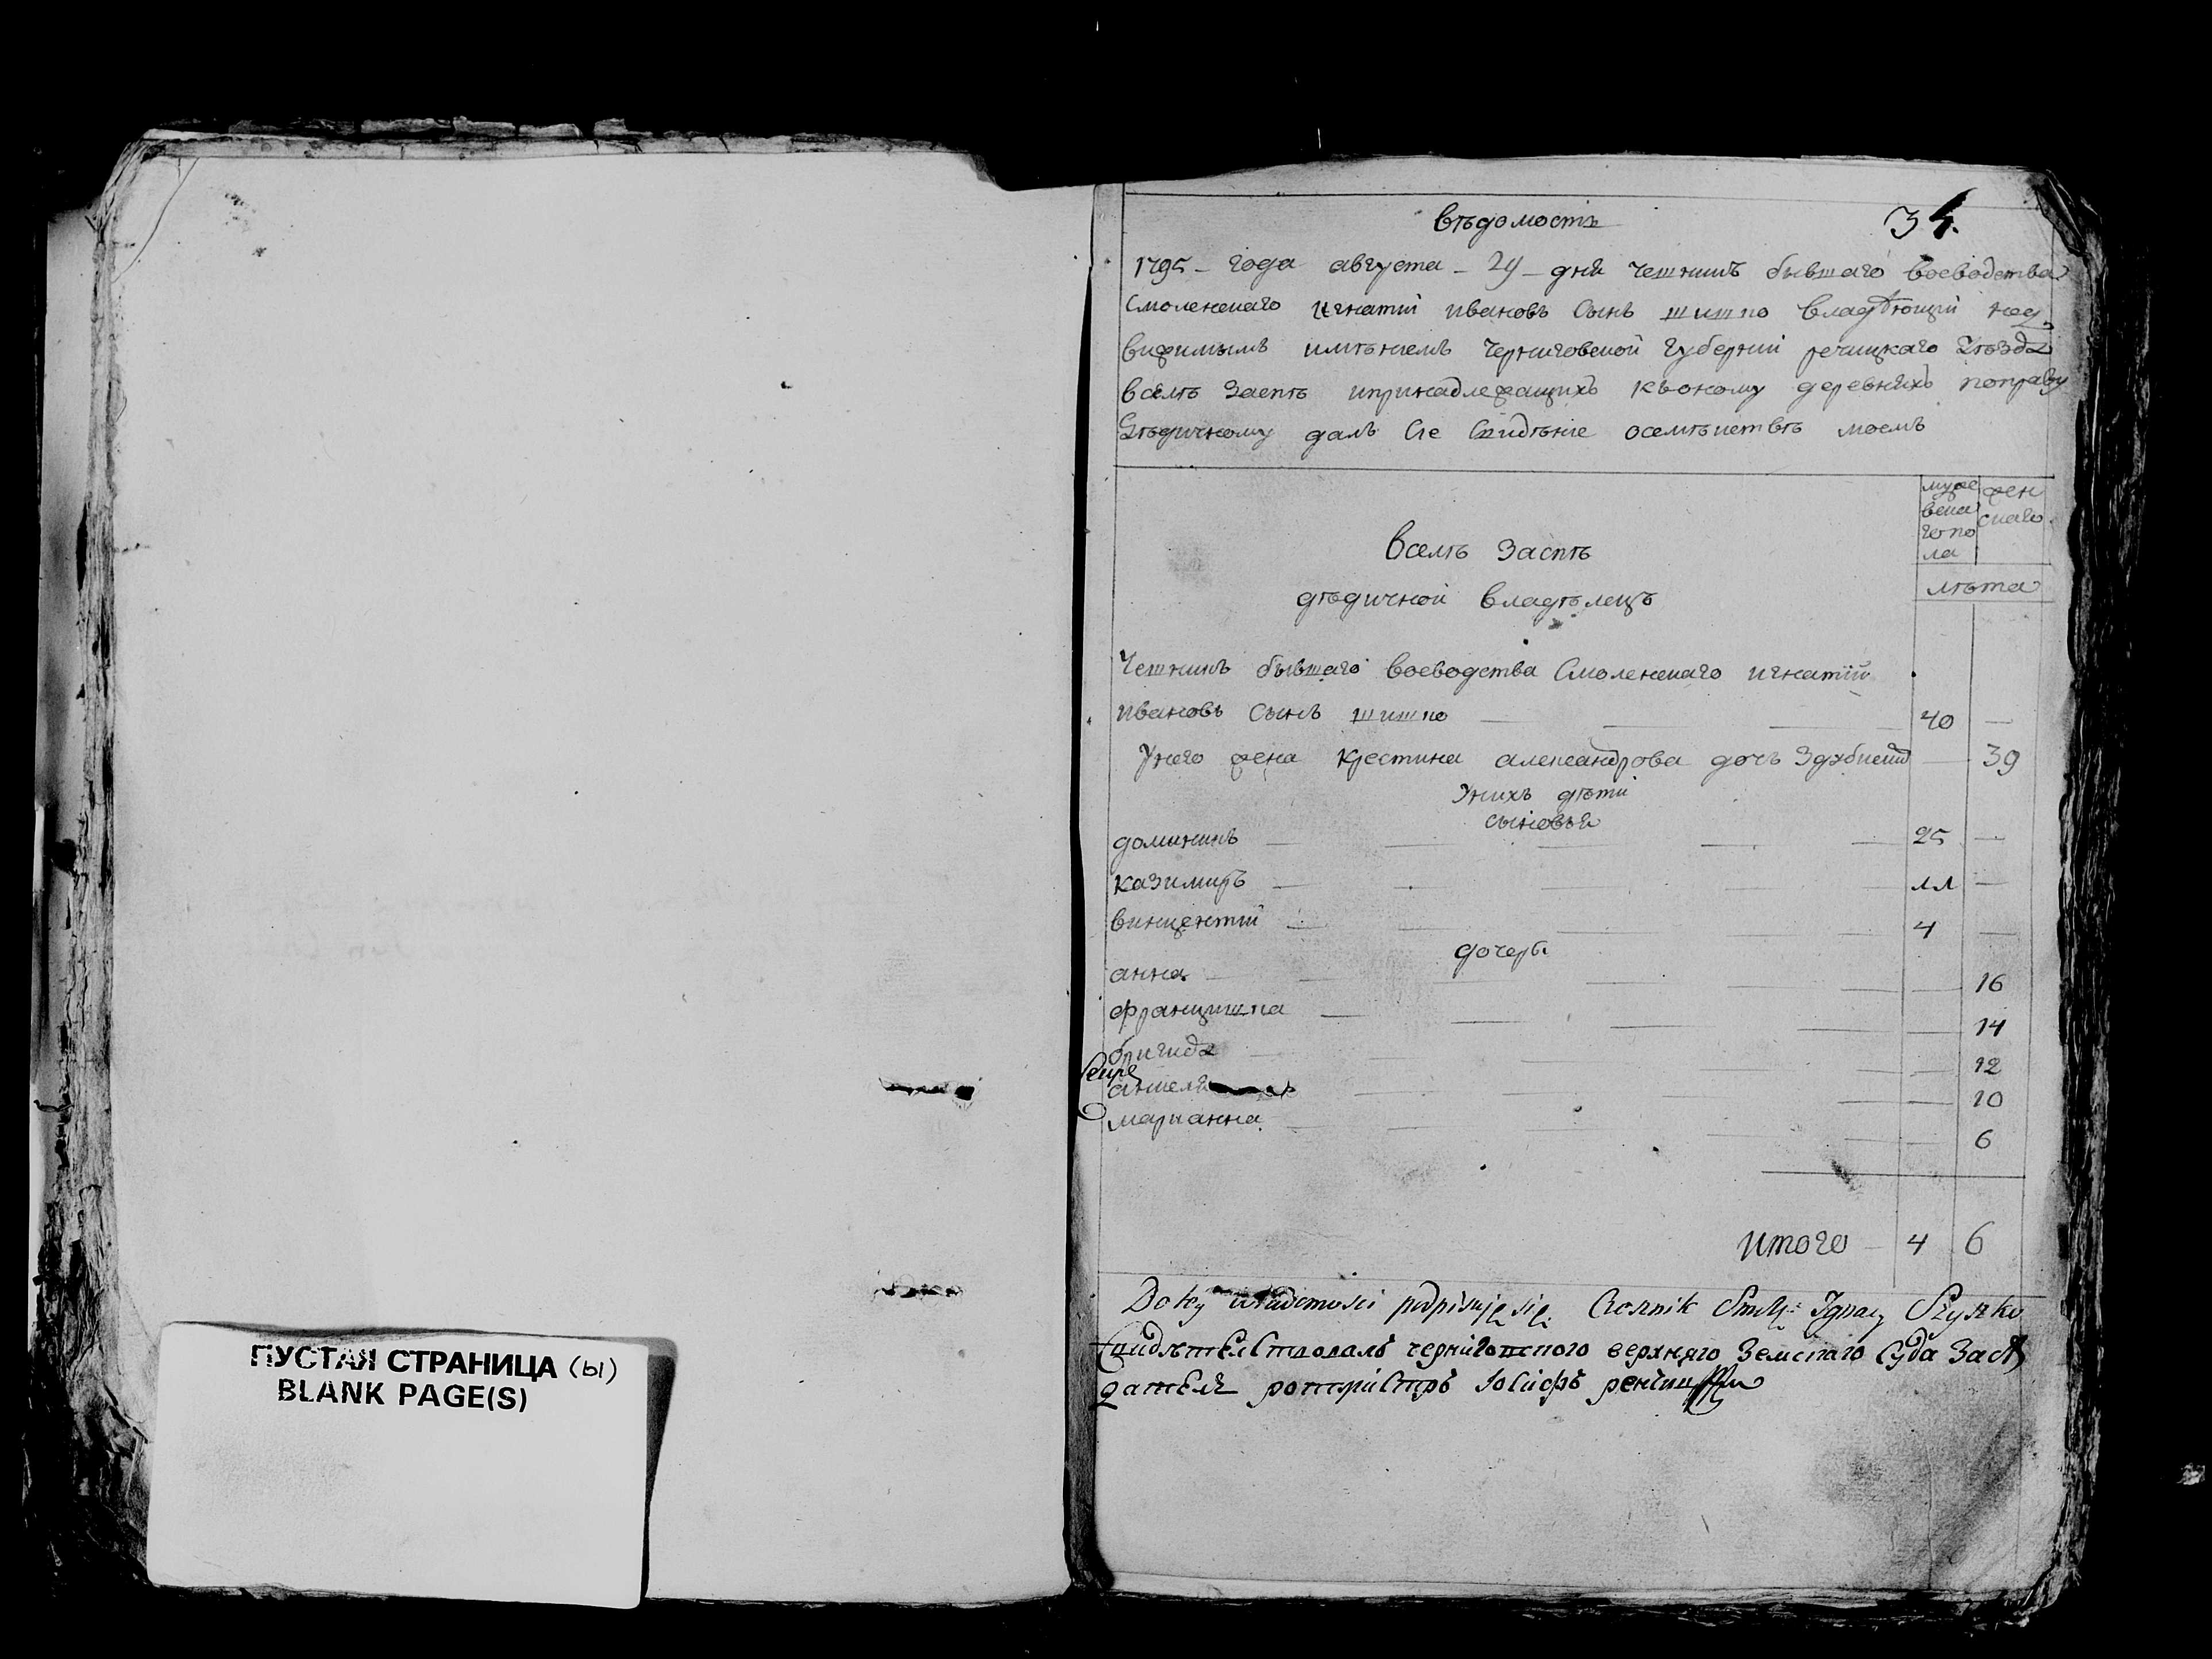 ПУСТАЯ СТРАНИЦА (ы)
BLANK PAGE(S)
34.
вѣдомость
1795 – года августа – 29 – дня чешникъ бывшаго воеводства
смоленскаго игнатій ивановъ сынъ шишко владѣющій нед
вижимымъ имѣніемъ черниговской губерніи речицкаго уѣзда
вселѣ заспѣ ипринадлежащихъ къоному деревняхъ поправу
дѣдичному далъ сіе свидѣніе осемѣйствѣ моемъ
муже
вска
гопо
ла
жен
скаго
лѣта
вселѣ заспѣ
дѣдичной владѣлецъ
чешникъ бывшаго воеводства смоленскаго игнатій
ивановъ сынъ шишко 40 —
унего жена крестина александрова дочь — 39
унихъ дѣти
сыновья
доминикъ 25 —
казимиръ 11 —
винцентій 4 —
дочери
анна — 16
францишка — 14
бригида — 12
анеля — 10
марианна — 6
итого 4 6
Do tey wiadomosci podpisuję się Czesnik Smol: Ignacy Szyszko
Свидѣтелствовалъ черніговского верхняго Земского Суда Засѣ
дателя ротмистръ Іосифъ